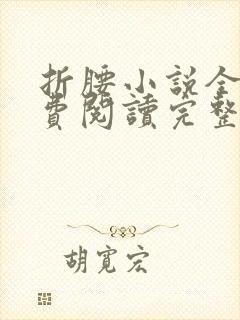 折腰小说全
費閱讀完整
胡寬宏